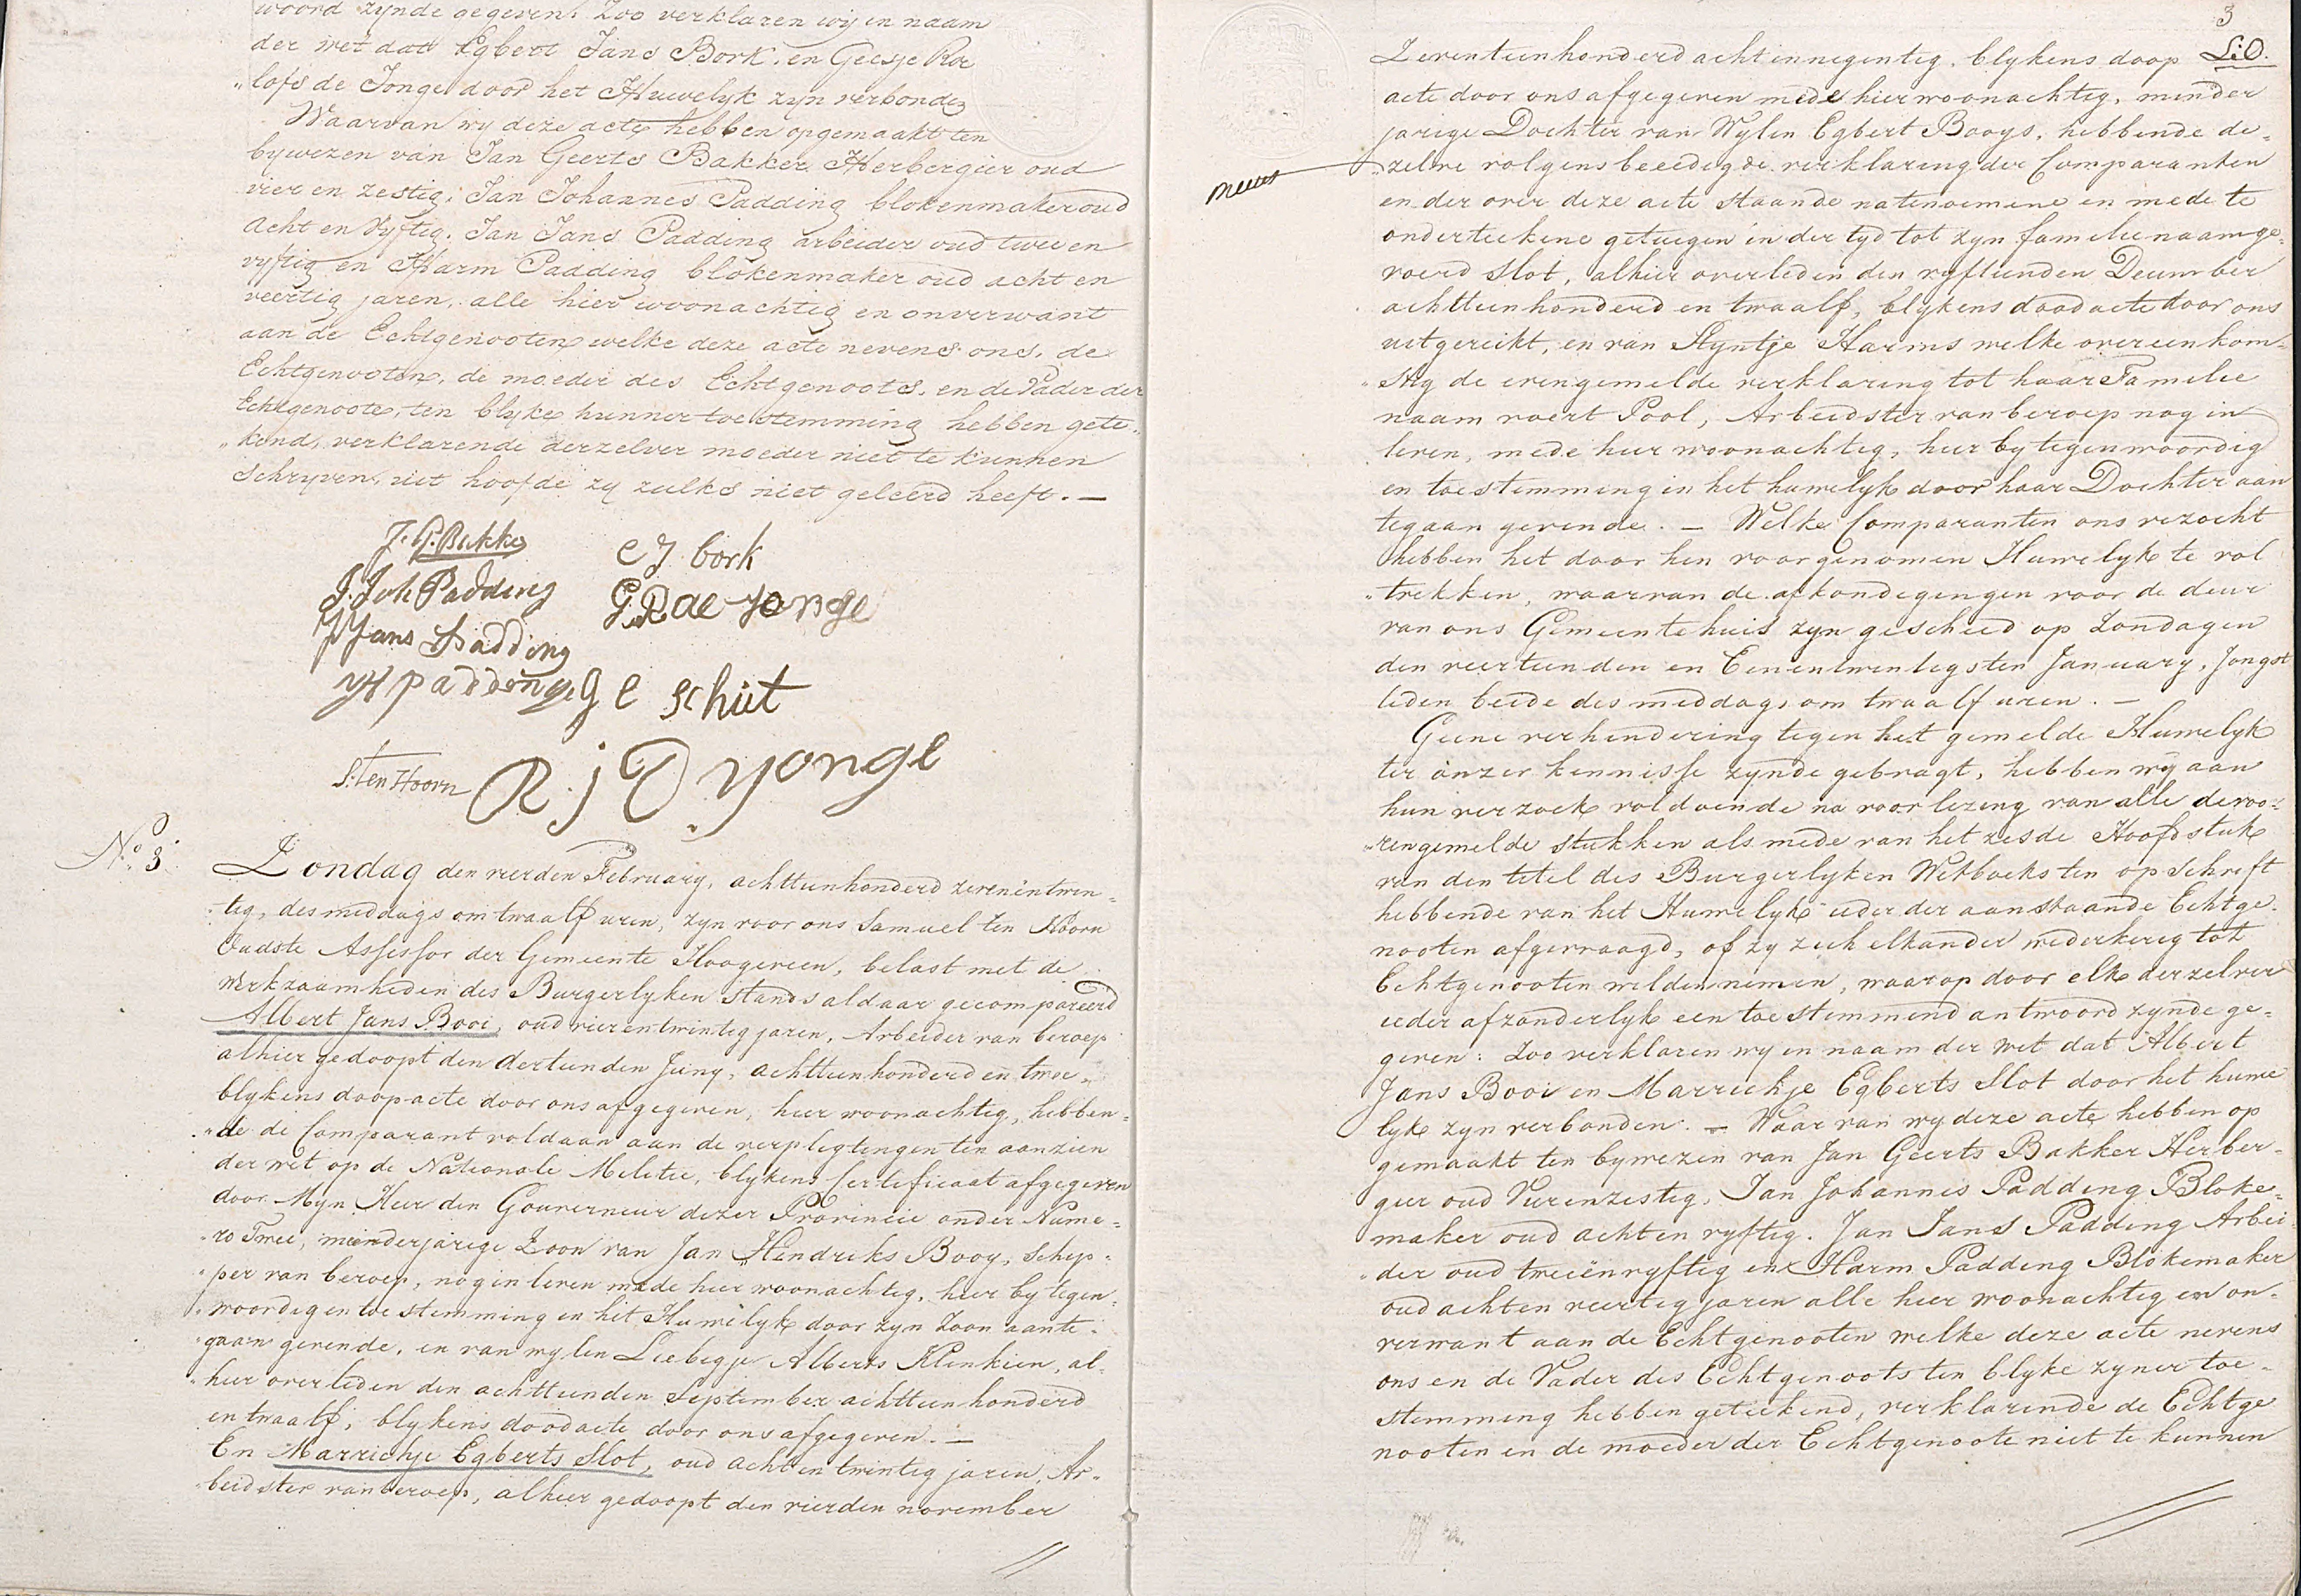 woord zynde gegeven. Zoo verklaren wy in naam
der wet dat Egbert Jans Bork. en Geesje Roe
„lofs de Jonge door het Huwelyk zyn verbonden
Waarvan wy deze acte hebben opgemaakt ten
bywezen van Jan Geerts Bakker Herbergier oud
vier en zestig, Jan Johannes Padding blokenmaker oud
Acht en Vyftig. Jan Jans Padding arbeider oud twee en
vyftig en Harm Padding blokenmaker oud acht en
veertig jaren, alle hier woonachtig en onverwant
aan de Echtgenooten welke deze acte nevens ons, de
Echtgenooten, de moeder des Echtgenoots, en de Vader der
Echtgenoote, ten blyke hunner toestemming hebben gete„
„kend, verklarende derzelver moeder niet te kunnen
Schryven, uit hoofde zy zulks niet geleerd heeft. —
J. G. Bakker
E J bork
J. Joh Padding
G. R de Jonge
J Jans Padding
H padding
G E schut
S. Ten Hoorn
R. j D Yonge
No 3.
Zondag den vierden February, achttienhonderd zevenentwin„
„tig, des middags om twaalf uren, zyn voor ons Samuel ten Hoorn
Oudste Assessor der Gemeente Hoogeveen, belast met de
werkzaamheden des Burgerlyken Stands aldaar gecompareerd
Albert Jans Booi, oud vierentwintig jaren, Arbeider van beroep
alhier gedoopt den dertienden Juny, achttienhonderd en twee„
blykens doopacte door ons afgegeven, hier woonachtig, hebben„
„de de Comparant voldaan aan de verpligtingen ten aanzien
der wet op de Nationale Militie, blykens Certificaat afgegeven
door Myn Heer den Gouverneur dezer Provincie onder Nume„
„ro Twee, minderjarige Zoon van Jan Hendriks Booy, schip„
„per van beroep, nog in leven mede hier woonachtig, hier by tegen„
„woordig en toestemming in het Huwelyk door zyn Zoon aante„
„gaan gevende, en van wylen Liebegje Alberts Klinkien, al„
„hier overleden den achttienden September achttienhonderd
en twaalf, blykens doodacte door ons afgegeven. —
En Marrichje Egberts Slot, oud acht en twintig jaren, Ar„
„beidster van beroep, alhier gedoopt den vierden november
3
Zeventienhonderd acht innegentig. blykens doop
acte door ons afgegeven mede hier woonachtig, minder
jarige Dochter van Wylen Egbert Booys, hebbende de„
„zelve volgens beeedigde verklaring der Comparanten
en der over deze acte staande natenoemene en mede te
onderteekene getuigen in der tyd tot zyn familienaam ge„
voerd Slot, alhier overleden den vyftienden December
achttienhonderd en twaalf, blykens doodacte door ons
uitgereikt, en van Styntje Harms welke overeenkom„
„stig de evengemelde verklaring tot haar Familie
naam voert Pool, Arbeidster van beroep nog in
leven, mede hier woonachtig, hier by tegenwoordig
en toestemming in het huwelyk door haar Dochter aan
tegaan gevende. — Welke Comparanten ons verzocht
hebben het door hen voorgenomen Huwelyk te vol
„trekken, waarvan de afkondegingen voor de deur
van ons Gemeentehuis zyn geschied op Zondagen
den veertienden en Eenentwintigsten January, Jongst
leden beide des middags om twaalf uren. —
Geene verhindering tegen het gemelde Huwelyk
ter onzer kennisse zynde gebragt, hebben wy aan
hun verzoek voldoende na voorlezing van alle de voo„
„rengemelde stukken als mede van het zesde Hoofdstuk
van den titel des Burgerlyken Wetboeks ten opschrift
hebbende van het Huwelyk ieder der aanstaande Echtge„
nooten afgevraagd, of zy zich elkander wederkerig tot
Echtgenooten wilden nemen, waarop door elk derzelver
ieder afzonderlyk een toestemmend antwoord zynde ge„
geven: Zoo verklaren wy in naam der wet dat Albert
Jans Booi en Marrichje Egberts Slot door het huwe
lyk zyn verbonden. — Waar van wy deze acte hebben op
gemaakt ten bywezen van Jan Geerts Bakker Herber„
gier oud Vierenzestig, Jan Johannes Padding Bloke„
maker oud acht en vyftig. Jan Jans Padding Arbei
„der oud tweeënvyftig en Harm Padding Blokemaker
oud acht en veertig jaren alle hier woonachtig en on„
verwant aan de Echtgenooten welke deze acte nevens
ons en de Vader des Echtgenoots ten blyke zyner toe„
stemming hebben geteekend, verklarende de Echtge
nooten en de moeder der Echtgenoote niet te kunnen